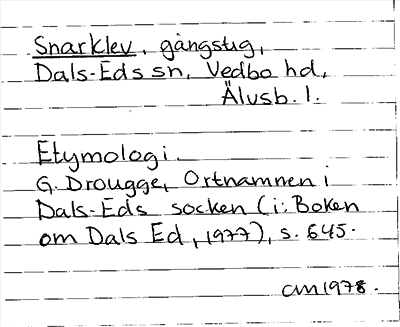 Snarklev, gångstig,
Dals-Eds sn, Vedbo hd,
Älvsb. l.
Etymologi.
G. Drougge, Ortnamnen i
Dals-Eds socken (i: Boken
om Dals Ed, 1977), s. 645.
am 1978.